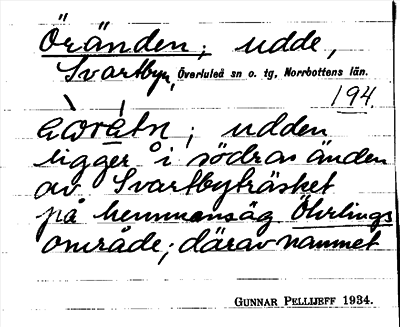 Öränden; udde,
Svartbyn, Överluleå sn o. tg, Norrbottens län.
194
; udden
ligger i södra änden
av Svartbyträsket
på hemmansäg Öhrlings
område; därav namnet
GUNNAR PELLIJEFF 1934.